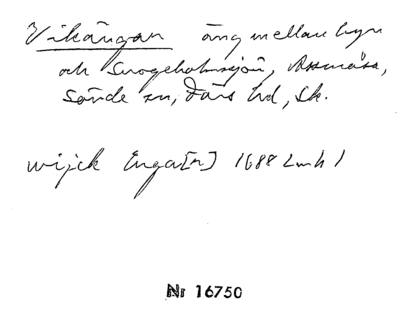 Vikängan äng mellan byn
och Snogeholmssjön, Assmåsa,
Sövde sn, Färs hd, Sk.
wijck Enga[n] 1688 Lmh 1
Nr 16750